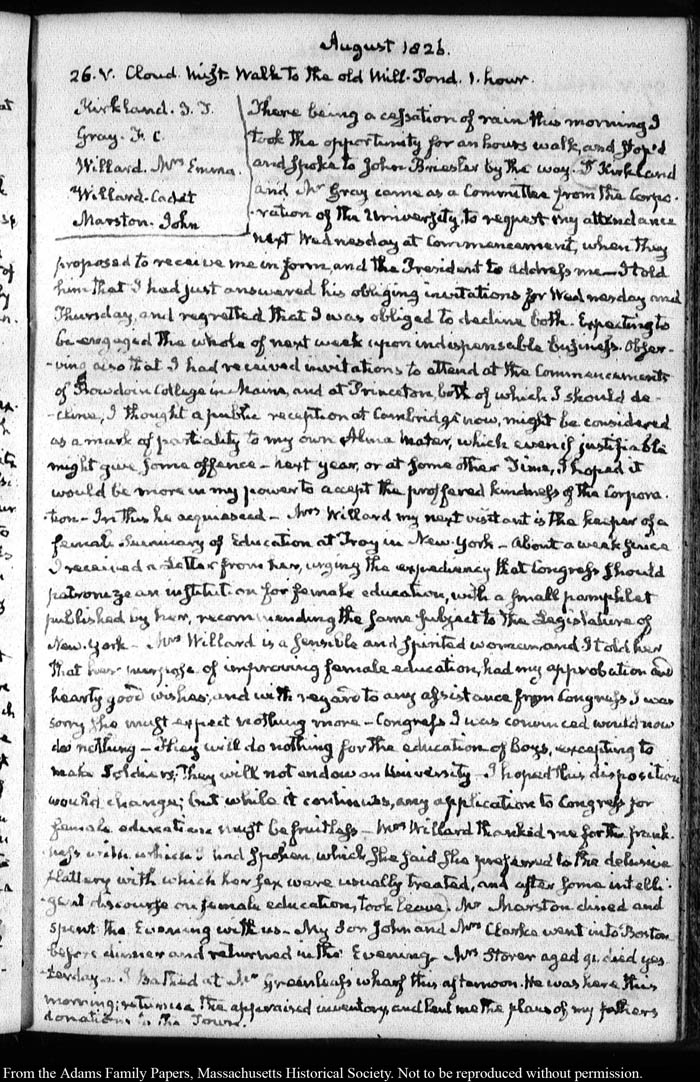 August 1826.
26. V. Cloud. Mist. Walk to the old Mill-Pond. 1. hour.
Kirkland. J. T.
Gray. F. C.
Willard. Mrs Emma.
Willard-Cadet
Marston. John
There being a cessation of rain this morning I
took the opportunity for an hours walk, and stop'd
and spoke to John Briesler by the way. Kirkland
and Mr Gray came as a Committee from the Corpo-
-ration of the University, to request my attendance
next Wednesday at Commencement, when they
proposed to receive me in form, and the President to address me— I told
him that I had just answered his obliging invitations for Wednesday and
Thursday, and regretted that I was obliged to decline both. Expecting to
be engaged the whole of next week upon indispensable business. Obser-
-ving also that I had received invitations to attend at the Commencements
of Bowdoin College in Maine, and at Princeton, both of which I should de-
-cline, I thought a public reception at Cambridge now, might be considered
as a mark of partiality to my own Alma Mater, which even if justifiable
might give some offence— next year, or at some other Time, I hoped it
would be more in my power to accept the proffered kindness of the Corpora-
tion— In this he acquiesced— Mrs Willard my next visitant is the keeper of a
female Seminary of Education at Troy in New-York— About a week since
I received a Letter from her, urging the expediency that Congress should
patronize an institution for female education, with a small pamphlet
published by her, recommending the same subject to the Legislature of
New-York— Mrs Willard is a sensible and spirited woman and I told her
that her purpose of improving female education, had my approbation and
hearty good wishes; and with regard to any assistance from Congress I was
sorry she must expect nothing more— Congress I was convinced would now
do nothing— They will do nothing for the education of Boys, excepting to
make Soldiers; They will not endow an University— I hoped this disposition
would change; but while it continues, any application to Congress for
female education must be fruitless— Mrs Willard thanked me for the frank-
ness with which I had spoken, which she said she preferred to the delusive
flattery with which her sex were usually treated, and after some intelli-
-gent discourse on female education, took leave. Mr Marston dined and
spent the Evening with us— My Son John and Mrs Clarke went into Boston
before dinner and returned in the Evening. Mrs Storer aged 91. died yes-
terday— I Bathed at Mr Greenleafs wharf this afternoon. He was here this
morning; returned the appraised inventory, and lent me the plans of my fathers
donations to the Town.
From the Adams Family Papers, Massachusetts Historical Society. Not to be reproduced without permission.